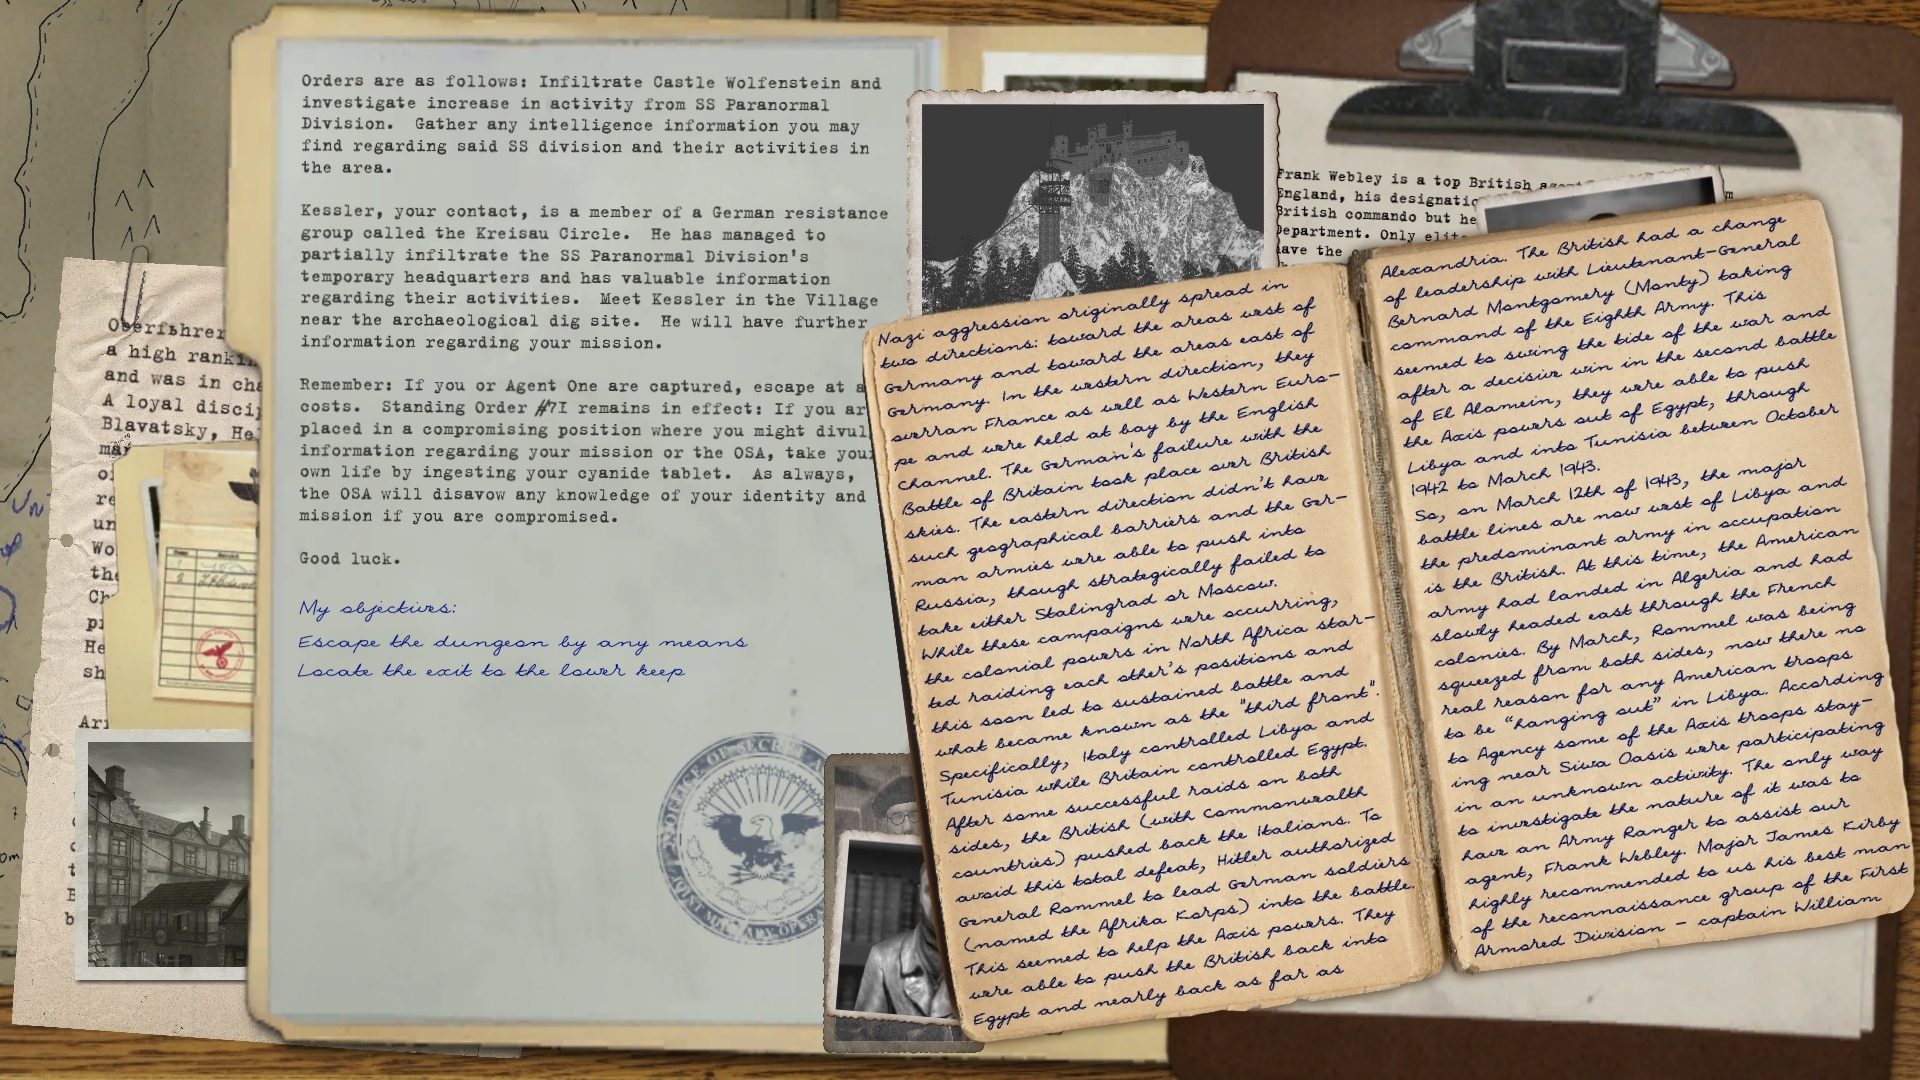 Orders are as follows: Infiltrate Castle Wolfenstein and
investigate increase in activity from SS Paranormal
Division. Gather any intelligence information you may
find regarding said SS division and their activities in
the area.
Kessler, your contact, is a member of a German resistance
group called the Kreisau Circle. He has managed to
partially infiltrate the SS Paranormal Division's
temporary headquarters and has valuable information
regarding their activities. Meet Kessler in the Village
near the archaeological dig site. He will have further
information regarding your mission.
Remember: If you or Agent One are captured, escape at a
costs. Standing Order #71 remains in effect: If you ar
placed in a compromising position where you might divul
information regarding your mission or the OSA, take your
own life by ingesting your cyanide tablet. As always,
the OSA will disavow any knowledge of your identity and
mission if you are compromised.
Good luck.
My objectives:
Escape the dungeon by any means
Locate the exit to the lower keep
Nazi aggression originally spread in
two directions: toward the areas west of
Germany and toward the areas east of
Germany. In the western direction, they
overran France as well as Western Euro-
pe and were held at bay by the English
Channel. The German's failure with the
Battle of Britain took place over British
skies. The eastern direction didn't have
such geographical barriers and the Ger-
man armies were able to push into
Russia, though strategically failed to
take either Stalingrad or Moscow.
While these campaigns were occurring,
the colonial powers in North Africa star-
ted raiding each other's positions and
this soon led to sustained battle and
what became known as the "third front".
Specifically, Italy controlled Libya and
Tunisia while Britain controlled Egypt.
After some successful raids on both
sides, the British (with Commonwealth
countries) pushed back the Italians. To
avoid this total defeat, Hitler authorized
General Rommel to lead German soldiers
(named the Afrika Korps) into the battle.
This seemed to help the Axis powers. They
were able to push the British back into
Egypt and nearly back as far as
Alexandria. The British had a change
of leadership with Lieutenant-General
Bernard Montgomery (Monty) taking
command of the Eighth Army. This
seemed to swing the tide of the war and
after a decisive win in the second battle
of El Alamein, they were able to push
the Axis powers out of Egypt, through
Libya and into Tunisia between October
1942 to March 1943.
So, on March 12th of 1943, the major
battle lines are now west of Libya and
the predominant army in occupation
is the British. At this time, the American
army had landed in Algeria and had
slowly headed east through the French
colonies. By March, Rommel was being
squeezed from both sides, now there no
real reason for any American troops
to be "hanging out" in Libya. According
to Agency some of the Axis troops stay-
ing near Siwa Oasis were participating
in an unknown activity. The only way
to investigate the nature of it was to
have an Army Ranger to assist our
agent, Frank Webley. Major James Kirby
highly recommended to us his best man
of the reconnaissance group of the First
Armored Division - captain William
Frank Webley is a top British
England, his designatio
British commando but he
Department. Only elite
have the
a high rankin
and was in cha
A loyal discip
Blavatsky, He